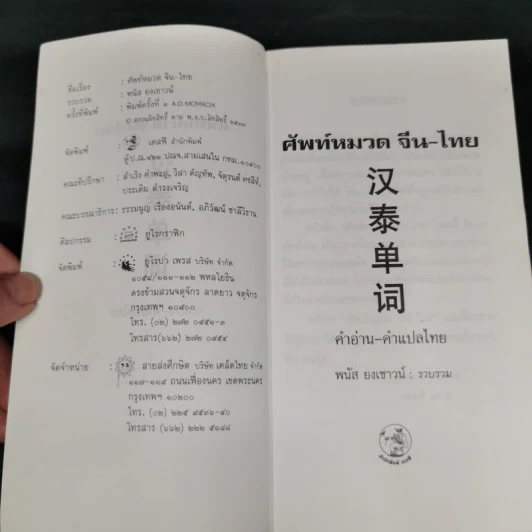 ชื่อเรื่อง : ศัพท์หมวด จีน-ไทย
รวบรวม : พนัส ยงเชาวน์
ครั้งที่พิมพ์ : พิมพ์ครั้งที่ ๑ A.D.MCMXCIX
© สงวนลิขสิทธิ์ ตาม พ.ร.บ.ลิขสิทธิ์ ๒๕๓๗
จัดพิมพ์ : เดลฟี สำนักพิมพ์
ตู้ป.ณ.๔๒๑ ปณจ.สามเสนใน กทม.๑๐๔๐๐
คณะที่ปรึกษา : สำเริง คำพะอุ, วิสา คัญทัพ,
ประเดิม ดำรงเจริญ
คณะบรรณาธิการ : ธรรมนูญ เรืองอนันต์, อภิวัฒน์
ศิลปกรรม : ยูโรกราฟิก
จัดพิมพ์ : ยูโรปา เพรส บริษัท จำกัด
๑๐๕๔/๑๑๑-๑๑๒ พหลโยธิน
ตรงข้ามสวนจตุจักร ลาดยาว จตุจักร
กรุงเทพฯ ๑๐๙๐๐
โทร. (๐๒) ๒๗๒ ๐๙๕๑-๓
โทรสาร(๖๖๒) ๒๗๒ ๐๙๕๔
จัดจำหน่าย : สายส่งศึกษิต บริษัท เคล็ดไทย จำกัด
๑๑๗-๑๑๙ ถนนเฟื่องนคร เขตพระนคร
กรุงเทพฯ ๑๐๒๐๐
โทร. (๐๒) ๒๒๕ ๙๕๓๖-๔๐
โทรสาร (๖๖๒) ๒๒๒ ๕๑๘๘
ศัพท์หมวด จีน-ไทย
汉泰单词
คำอ่าน-คำแปลไทย
พนัส ยงเชาวน์ : รวบรวม